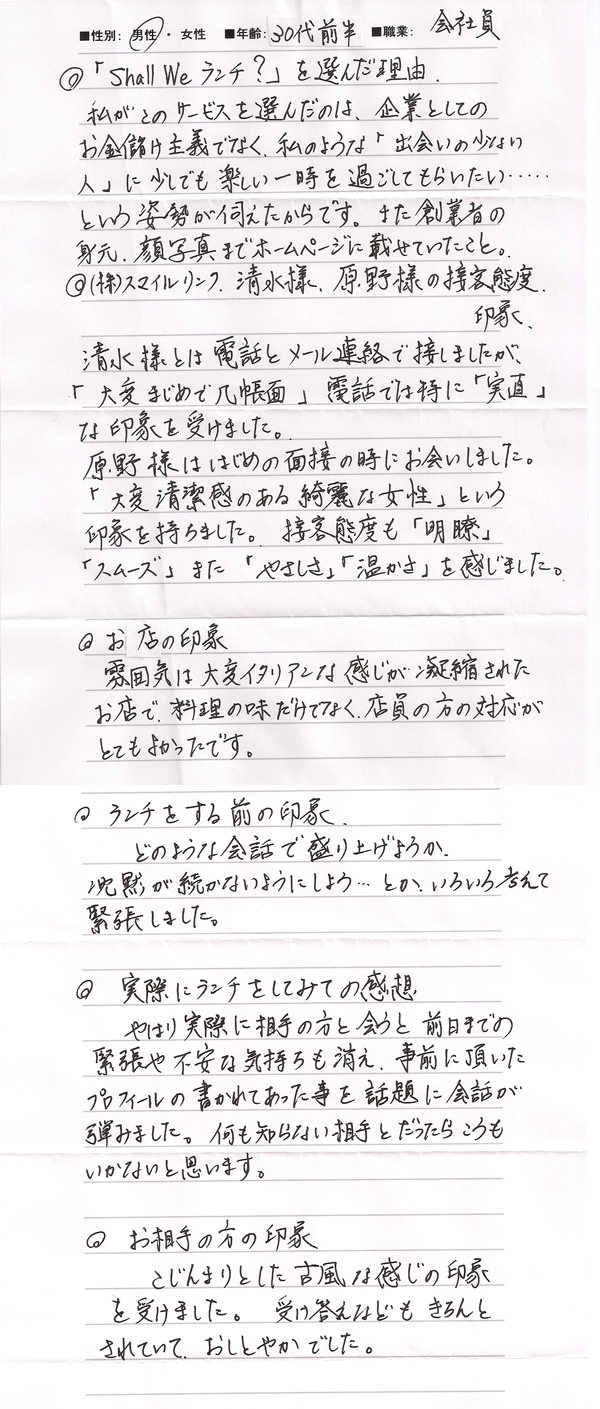 ■性別: 男性・女性 ■年齢: 30代前半 ■職業: 会社員
◎「Shall We ランチ?」を選んだ理由.
私がこのサービスを選んだのは、企業としての
お金儲け主義でなく、私のような「出会いの少ない
人」に少しでも楽しい一時を過ごしてもらいたい……
という姿勢が伺えたからです。また創業者の
身元、顔写真までホームページに載せていたこと。
◎(株)スマイルリンク、清水様、原野様の接客態度、
印象、
清水様とは電話とメール連絡で接しましたが、
「大変まじめで几帳面」電話では特に「実直」
な印象を受けました。
原野様ははじめの面接の時にお会いしました。
「大変清潔感のある綺麗な女性」という
印象を持ちました。接客態度も「明瞭」
「スムーズ」また「やさしさ」「温かさ」を感じました。
◎お店の印象
雰囲気は大変イタリアンな感じが凝縮された
お店で、料理の味だけでなく、店員の方の対応が
とてもよかったです。
◎ランチをする前の印象、
どのような会話で盛り上げようか、
沈黙が続かないようにしよう…とか、いろいろ考えて
緊張しました。
◎実際にランチをしてみての感想
やはり実際に相手の方と会うと前日までの
緊張や不安な気持ちも消え、事前に頂いた
プロフィールの書かれてあった事を話題に会話が
弾みました。何も知らない相手とだったらこうも
いかないと思います。
◎お相手の方の印象
こじんまりとした古風な感じの印象
を受けました。受け答えなどもきちんと
されていて、おしとやかでした。